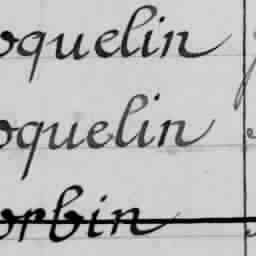 oquelin
oquelin
orbin